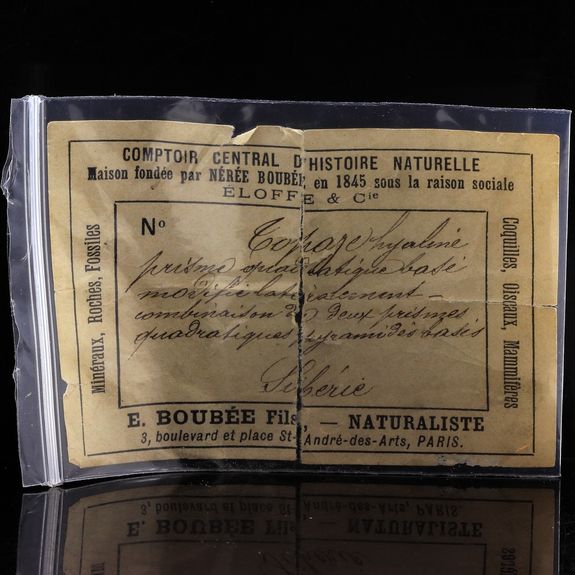 COMPTOIR CENTRAL D'HISTOIRE NATURELLE
Maison fondée par NÉRÉE BOUBÉE, en 1845 sous la raison sociale
ÉLOFFE & Cie
Minéraux, Roches, Fossiles
No
Topaze hyaline
prisme quadratique basé
modifié latéralement —
combinaison de deux prismes
quadratiques pyramidés basés
Sibérie
Coquilles, Oiseaux, Mammifères
E. BOUBÉE Fils, — NATURALISTE
3, boulevard et place St-André-des-Arts, PARIS.